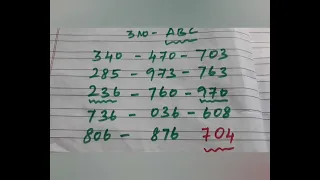 310 - ABC
340 - 470 - 703
285 - 973 - 763
236 - 760 - 970
736 - 036 - 608
806 - 876 704